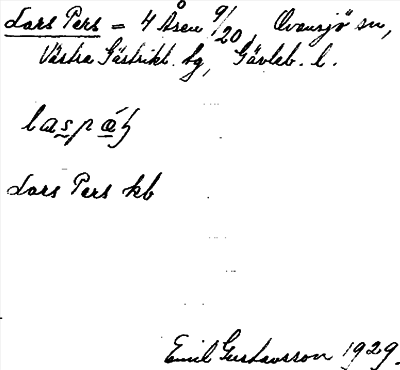 Lars Pers = 4 Åsen 9/20, Ovansjö sn,
Västra Gästrikl. tg, Gävleb. l.
laspáʒ
Lars Pers kb
Emil Gustavsson 1929.